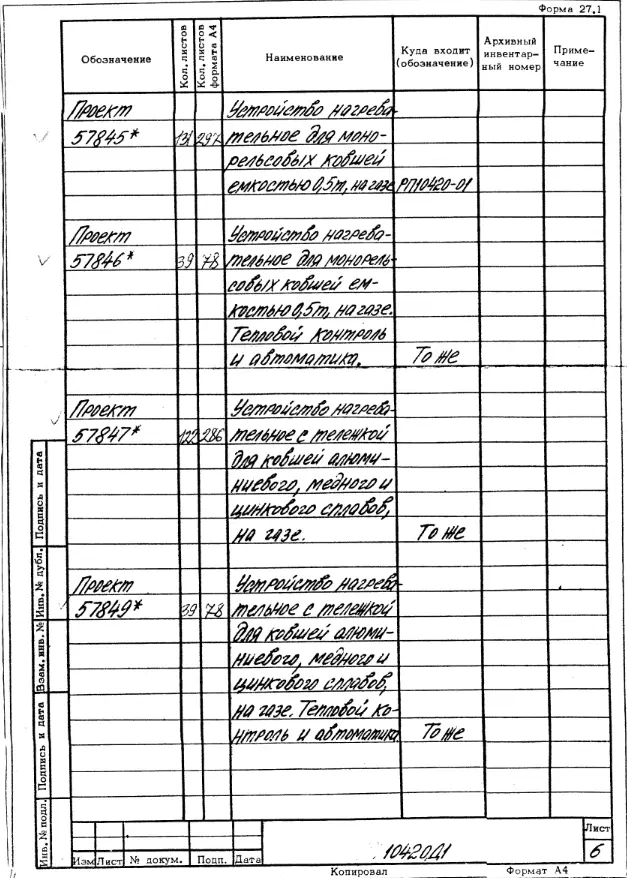 Форма 27.1
Обозначение
Кол. листов
Кол. листов формата А4
Наименование
Куда входит (обозначение)
Архивный инвентар-
ный номер
Приме-
чание
Проект
Устройство нагрева-
57845* 131 297 тельное для моно-
рельсовых ковшей
емкостью 0,5т, на газе РП10420-01
Проект
Устройство нагрева-
57846* 39 78 тельное для монорель-
совых ковшей ем-
костью 0,5т, на газе.
Тепловой контроль
и автоматика. То же
Проект
Устройство нагрева-
57847* 122 286 тельное с тележкой
для ковшей алюми-
ниевого, медного и
цинкового сплавов,
на газе. То же
Проект
Устройство нагрева-
57849* 39 78 тельное с тележкой
для ковшей алюми-
ниевого, медного и
цинкового сплавов,
на газе. Тепловой ко-
нтроль и автоматика То же
Подпись и дата
Инв. № дубл.
Взам. инв. №
Подпись и дата
Инв. № подл.
Изм Лист № докум. Подп. Дата
10420Д1
Лист
6
Копировал Формат А4